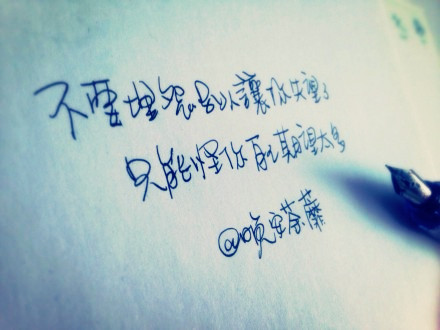 不要埋怨别人讓你失望了
只能怪你自己期望太多
@荼蘼